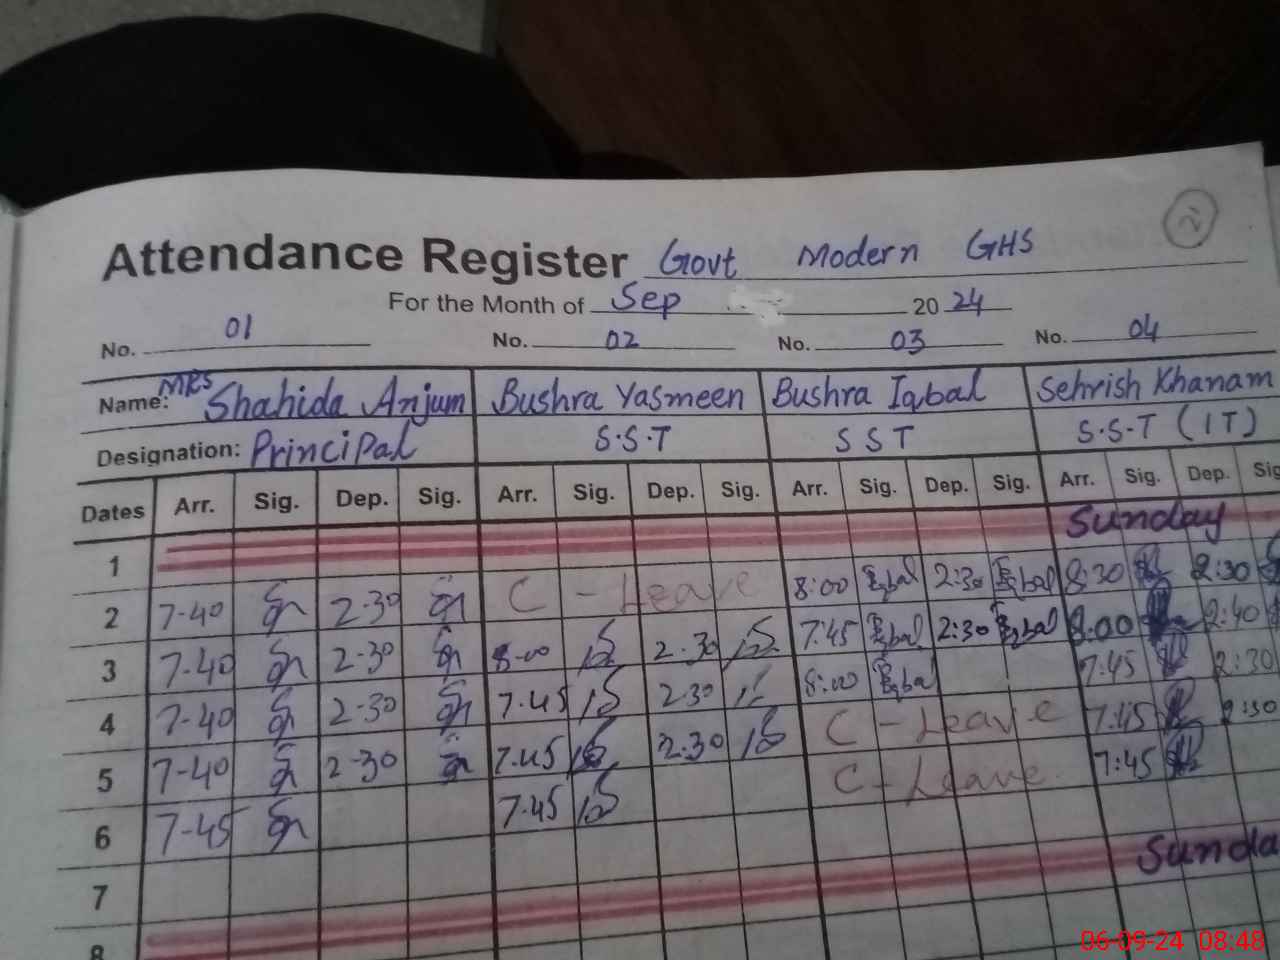 2
Attendance Register Govt Modern GHS
For the Month of Sep 2024
No. 01 No. 02 No. 03 No. 04
Name: MRS Shahida Anjum Bushra Yasmeen Bushra Iqbal Sehrish Khanam
Designation: Principal S.S.T S S T S.S-T (IT)
Dates Arr. Sig. Dep. Sig. Arr. Sig. Dep. Sig. Arr. Sig. Dep. Sig. Arr. Sig. Dep. Sig
1 Sunday
2 7-40 2-30 C - Leave 8:00 Iqbal 2:30 Iqbal 8:30 2:30
3 7-40 2-30 8-00 2.30 7:45 Iqbal 2:30 Iqbal 8:00 2:40
4 7-40 2-30 7.45 230 8:00 Iqbal 7:45 2:30
5 7-40 2-30 7.45 2:30 C - Leave 7:45 2:30
6 7-45 7.45 C - Leave 7:45
7
8 Sunda
06-09-24 08:48